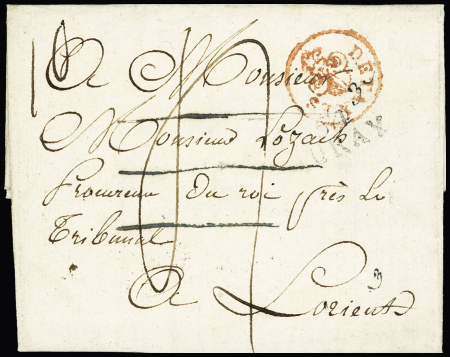 A Monsieur
Monsieur Lozach
Procureur du roi près le
Tribunal
A Lorient
3